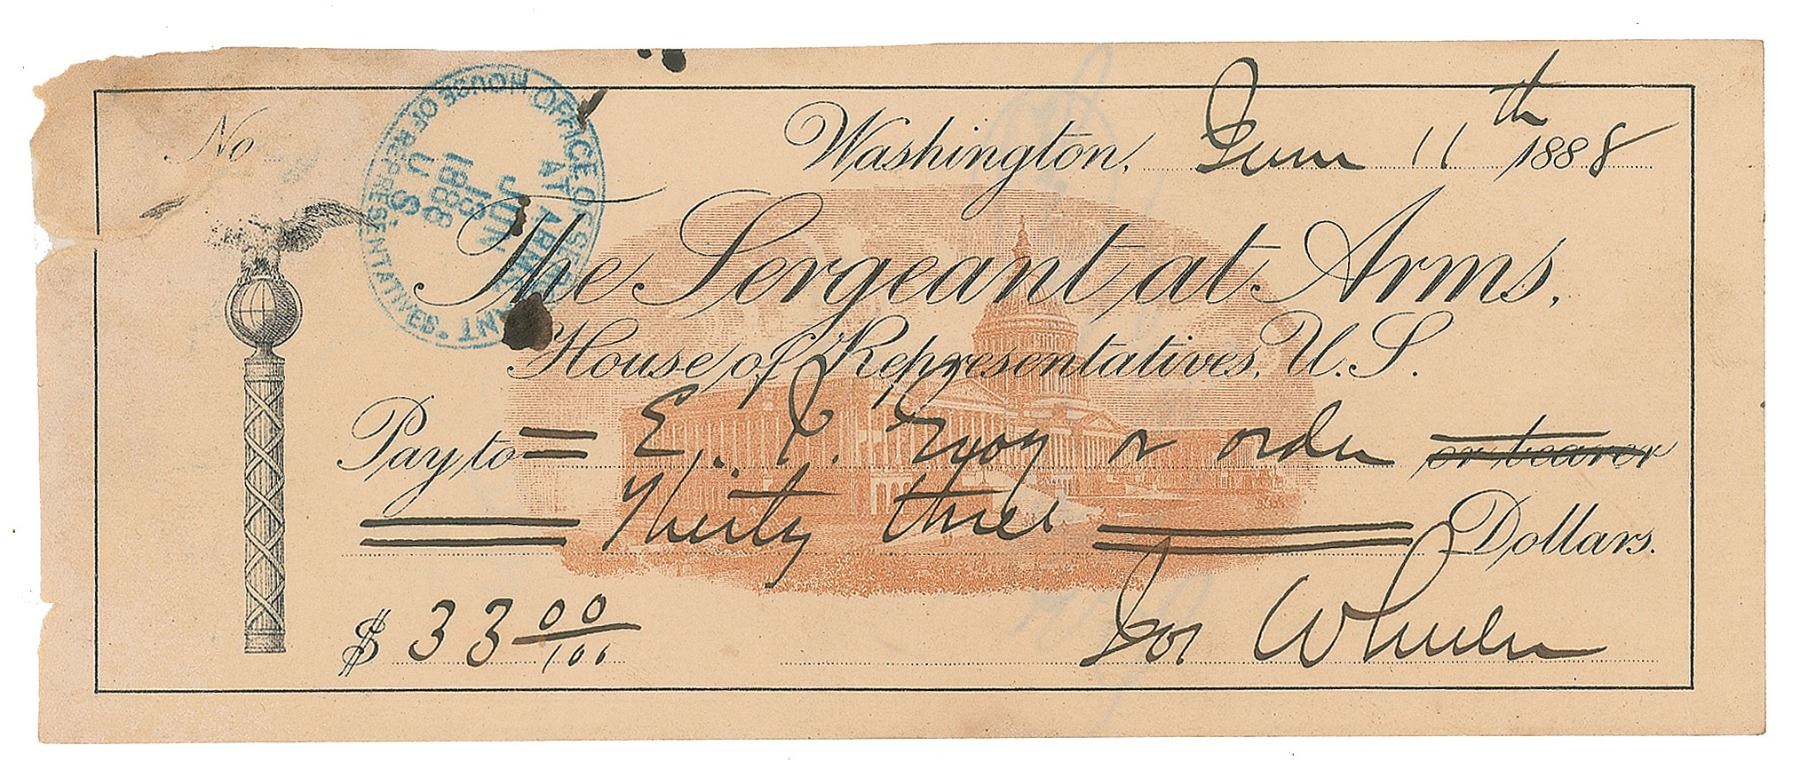 No
OFFICE OF SERGEANT AT ARMS
HOUSE OF REPRESENTATIVES.
JUN
13
1888
U.S.
Washington, June 11th 1888
The Sergeant at Arms,
House of Representatives, U.S.
Pay to E. or order or bearer
Thirty three Dollars.
$ 33 00/100
Jos Wheeler